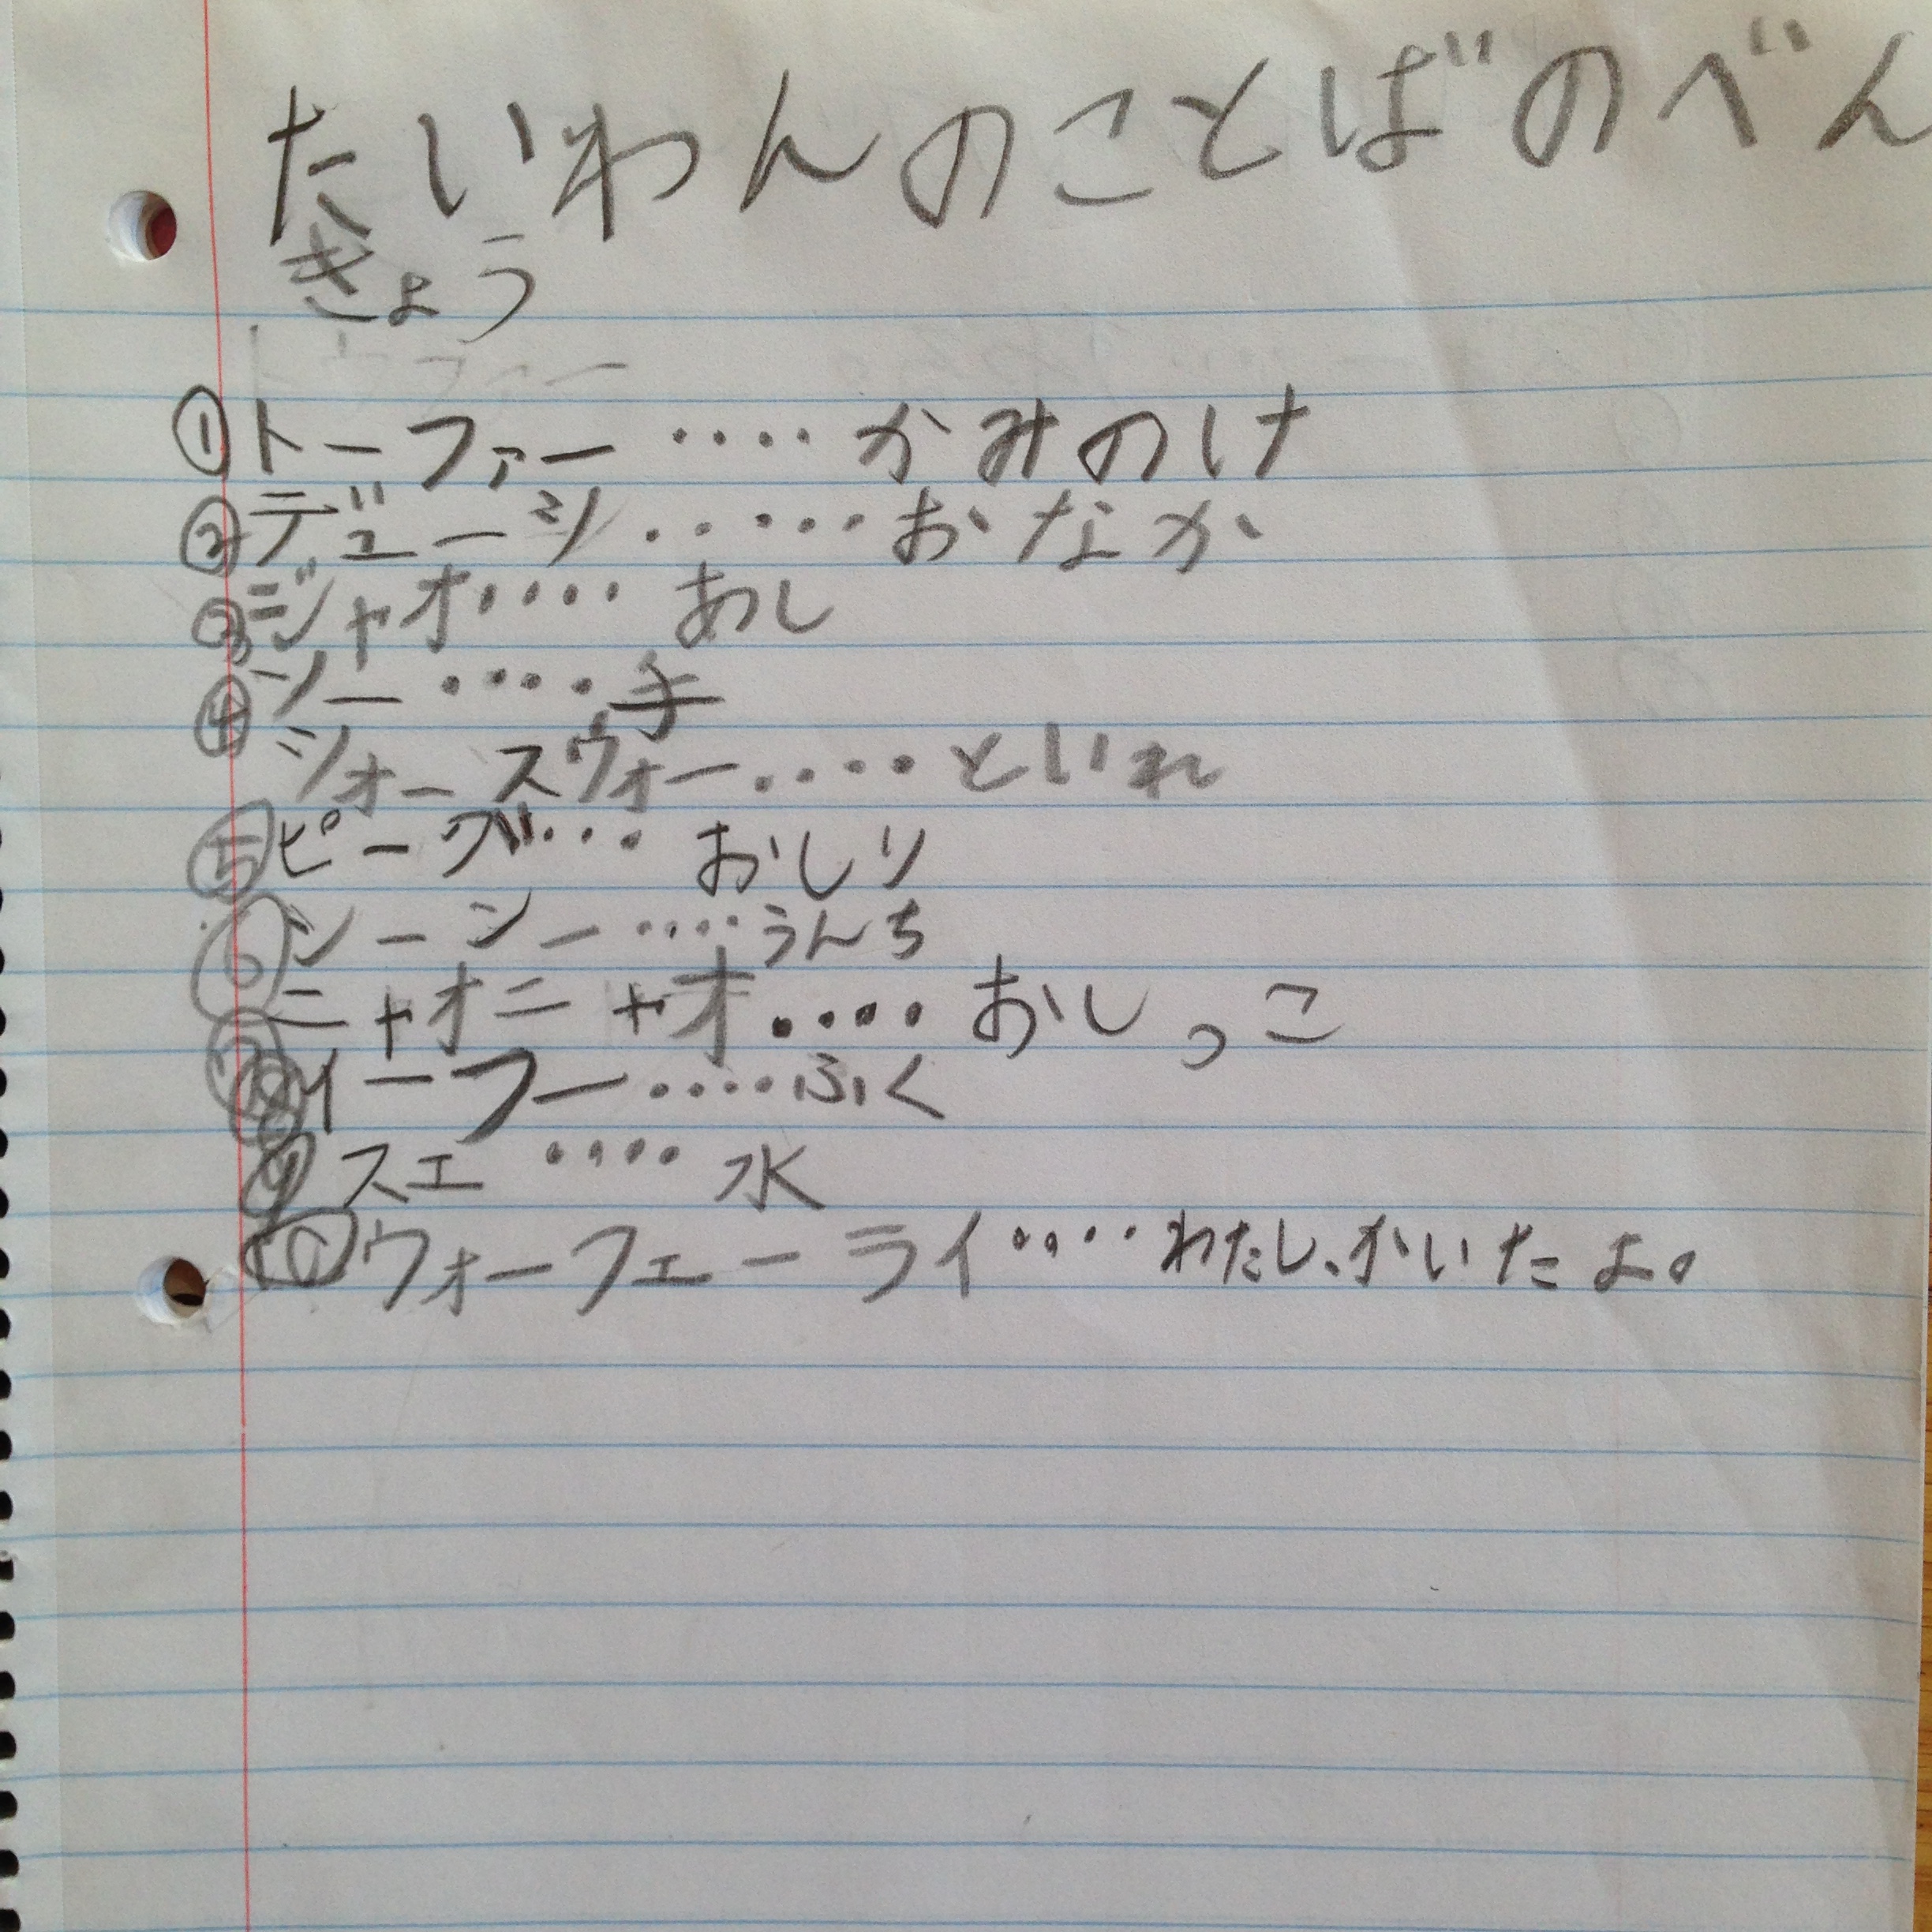 たいわんのことばのべん
きょう
①トーファー‥‥かみのけ
②デュージ‥‥‥おなか
③ジャオ‥‥あし
④ソー‥‥手
ツォースウォー‥‥といれ
⑤ピーグ‥‥おしり
⑥ンーンー‥‥うんち
ニャオニャオ‥‥おしっこ
イーフー‥‥ふく
⑨スエ‥‥水
⑩ウォーフェーライ‥‥わたし、かいたよ。